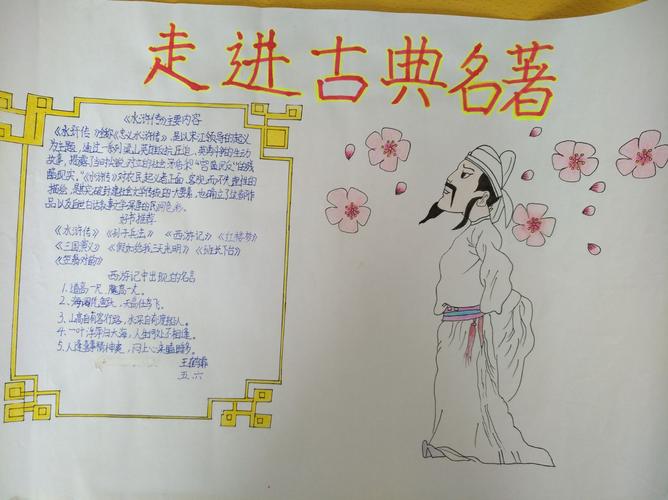 走进古典名著
《水浒传》主要内容
《水浒传》又称《忠义水浒传》,是以宋江领导的起义
为主题,通过一系列梁山英雄反抗压迫、英勇斗争的生动
故事,揭露了当时尖锐对立的社会矛盾和“官逼民反”的残
酷现实。《水浒传》对农民起义者正面、客观而不失
描绘,是
品以及自
好书推荐
《水浒传》《孙子兵法》《西游记》《红楼梦》
《三国演义》《假如给我三天光明》《班长下台》
《笠翁对韵》
西游记中出现的名言
1.道高一尺 魔高一丈。
2.海阔凭鱼跃,天高任鸟飞。
3.山高自有客行路,水深自有渡船人。
4.一叶浮萍归大海,人生何处不相逢。
5.人逢喜事精神爽,闷上心来瞌睡多。
五.六